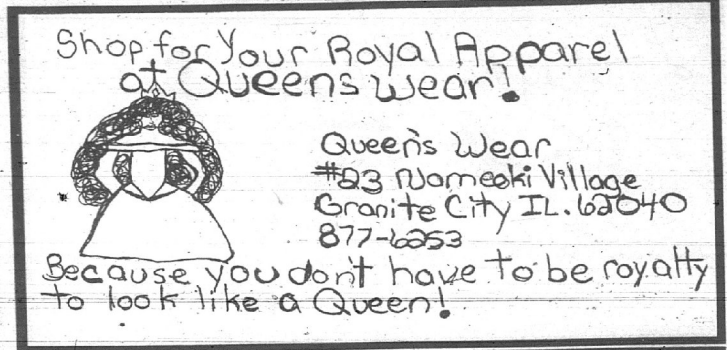 Shop for Your Royal Apparel
at Queens wear!
Queen's Wear
#23 Nameoki Village
Granite City IL. 62040
877-6253
Because you don't have to be royalty
to look like a Queen!